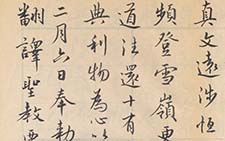 真文遠涉恒
頻登雪嶺更
道法還十有
典利物為心以
二月六日奉勅
翻譯聖教要